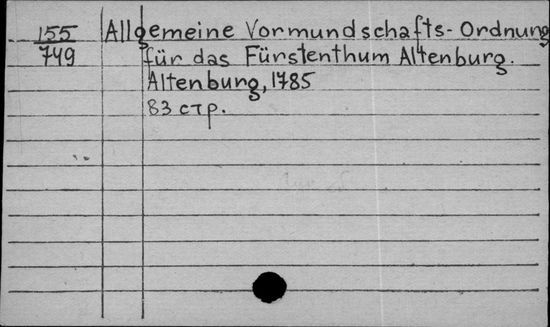 155 Allgemeine Vormundschafts-Ordnung
749 für das Fürstenthum Altenburg.
Altenburg, 1785
83 стр.